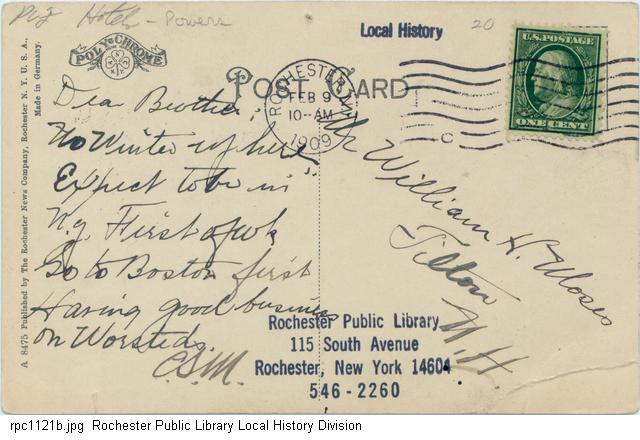 Hotels - Powers
Local History
20
POLYCHROME
POST CARD
ROCHESTER, N.Y.
FEB 9
10-AM
1909
U.S. POSTAGE
ONE CENT
C
Dear Brother,
No Winter up here
Expect to be in
N.Y. First of wk
Go to Boston first
Having good business
on Worsteds.
C.S.M.
Mr William H. Moses
Tilton
N.H.
Rochester Public Library
115 South Avenue
Rochester, New York 14604
546-2260
A 8475 Published by The Rochester News Company, Rochester N. Y. U. S. A.,
Made in Germany.
rpc1121b.jpg Rochester Public Library Local History Division